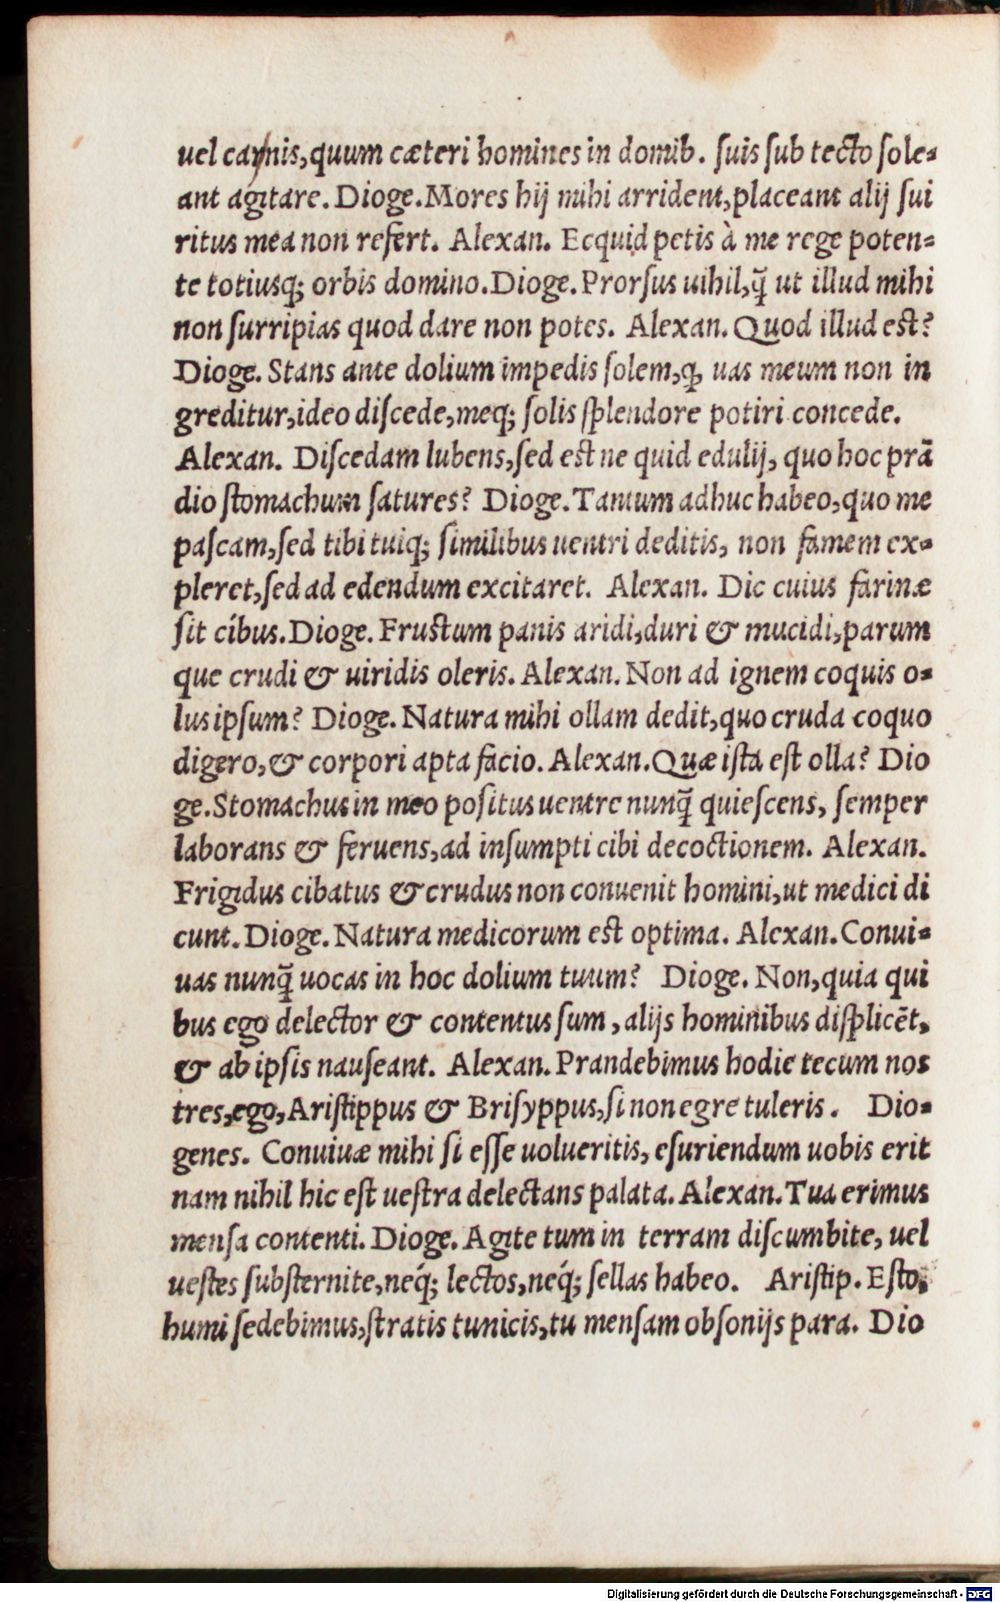 uel carnis, quum cæteri homines in domib. ſuis ſub tecto ſole=
ant agitare. Dioge. Mores hij mihi arrident, placeant alij ſui
ritus mea non refert. Alexan. Ecquid petis à me rege poten=
te totiusq; orbis domino. Dioge. Prorſus uihil, q̃ ut illud mihi
non ſurripias quod dare non potes. Alexan. Quod illud eſt?
Dioge. Stans ante dolium impedis ſolem, ꝙ uas meum non in
greditur, ideo diſcede, meq; ſolis ſplendore potiri concede.
Alexan. Diſcedam lubens, ſed eſt ne quid edulij, quo hoc prã
dio ſtomachum ſatures? Dioge. Tantum adhuc habeo, quo me
paſcam, ſed tibi tuiq; ſimilibus uentri deditis, non famem ex=
pleret, ſed ad edendum excitaret. Alexan. Dic cuius farinæ
ſit cibus. Dioge. Fruſtum panis aridi, duri & mucidi, parum
que crudi & uiridis oleris. Alexan. Non ad ignem coquis o=
lus ipſum? Dioge. Natura mihi ollam dedit, quo cruda coquo
digero, & corpori apta facio. Alexan. Quæ iſta eſt olla? Dio
ge. Stomachus in meo poſitus uentre nunq̃ quieſcens, ſemper
laborans & feruens, ad inſumpti cibi decoctionem. Alexan.
Frigidus cibatus & crudus non conuenit homini, ut medici di
cunt. Dioge. Natura medicorum eſt optima. Alexan. Conui=
uas nunq̃ uocas in hoc dolium tuum? Dioge. Non, quia qui
bus ego delector & contentus ſum, alijs hominibus diſplicẽt,
& ab ipſis nauſeant. Alexan. Prandebimus hodie tecum nos
tres, ego, Ariſtippus & Briſyppus, ſi non egre tuleris. Dio=
genes. Conuiuæ mihi ſi eſſe uolueritis, eſuriendum uobis erit
nam nihil hic eſt ueſtra delectans palata. Alexan. Tua erimus
menſa contenti. Dioge. Agite tum in terram diſcumbite, uel
ueſtes ſubſternite, neq́; lectos, neq́; ſellas habeo. Ariſtip. Eſto,
humi ſedebimus, ſtratis tunicis, tu menſam obſonijs para. Dio
Digitalisierung gefördert durch die Deutsche Forschungsgemeinschaft - DFG